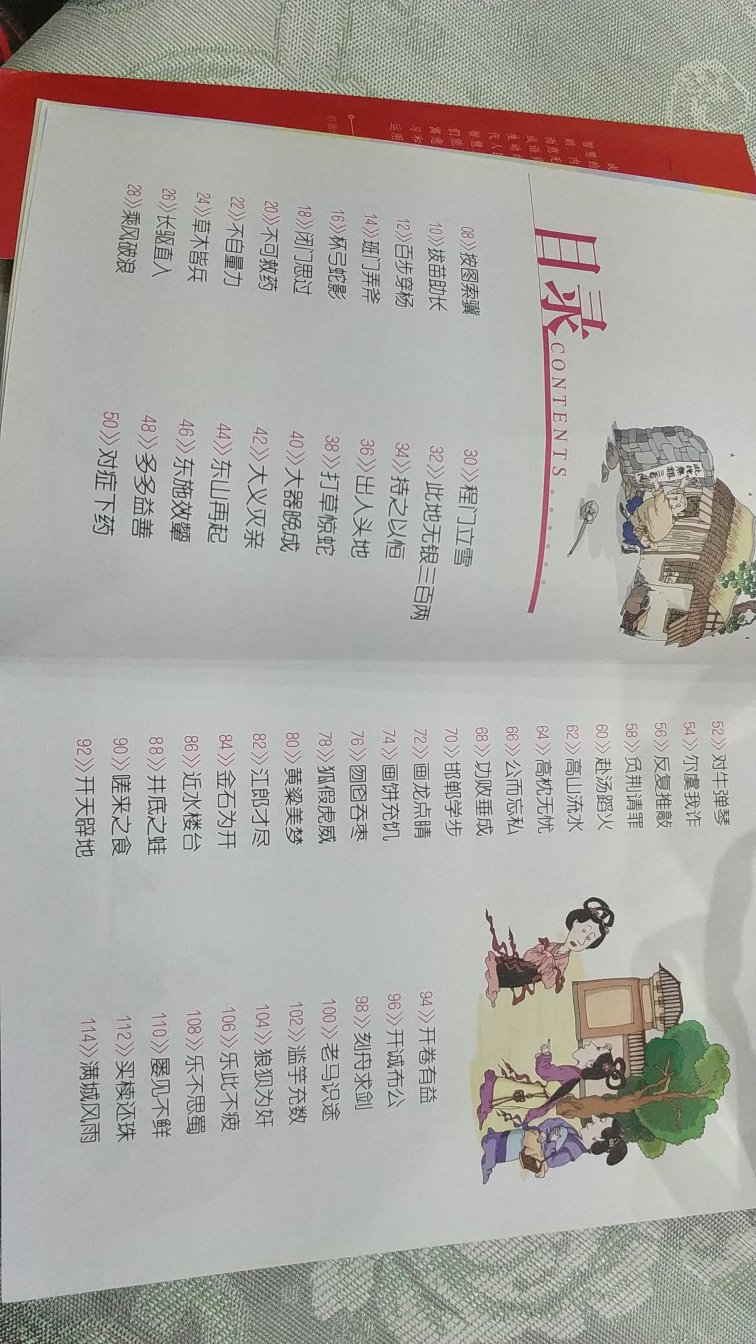 目录
CONTENTS
08>>按图索骥
10>>拔苗助长
12>>百步穿杨
14>>班门弄斧
16>>杯弓蛇影
18>>闭门思过
20>>不可救药
22>>不自量力
24>>草木皆兵
26>>长驱直入
28>>乘风破浪
30>>程门立雪
32>>此地无银三百两
34>>持之以恒
36>>出人头地
38>>打草惊蛇
40>>大器晚成
42>>大义灭亲
44>>东山再起
46>>东施效颦
48>>多多益善
50>>对症下药
52>>对牛弹琴
54>>尔虞我诈
56>>反复推敲
58>>负荆请罪
60>>赴汤蹈火
62>>高山流水
64>>高枕无忧
66>>公而忘私
68>>功败垂成
70>>邯郸学步
72>>画龙点睛
74>>画饼充饥
76>>囫囵吞枣
78>>狐假虎威
80>>黄粱美梦
82>>江郎才尽
84>>金石为开
86>>近水楼台
88>>井底之蛙
90>>嗟来之食
92>>开天辟地
94>>开卷有益
96>>开诚布公
98>>刻舟求剑
100>>老马识途
102>>滥竽充数
104>>狼狈为奸
106>>乐此不疲
108>>乐不思蜀
110>>屡见不鲜
112>>买椟还珠
114>>满城风雨